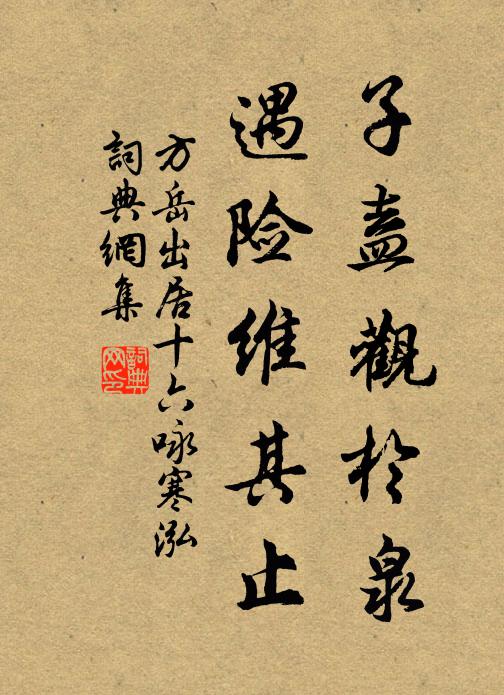 子盍觀於泉
遇险維其止
方岳出居十六咏寒泓
詞典網集
詞典
网印